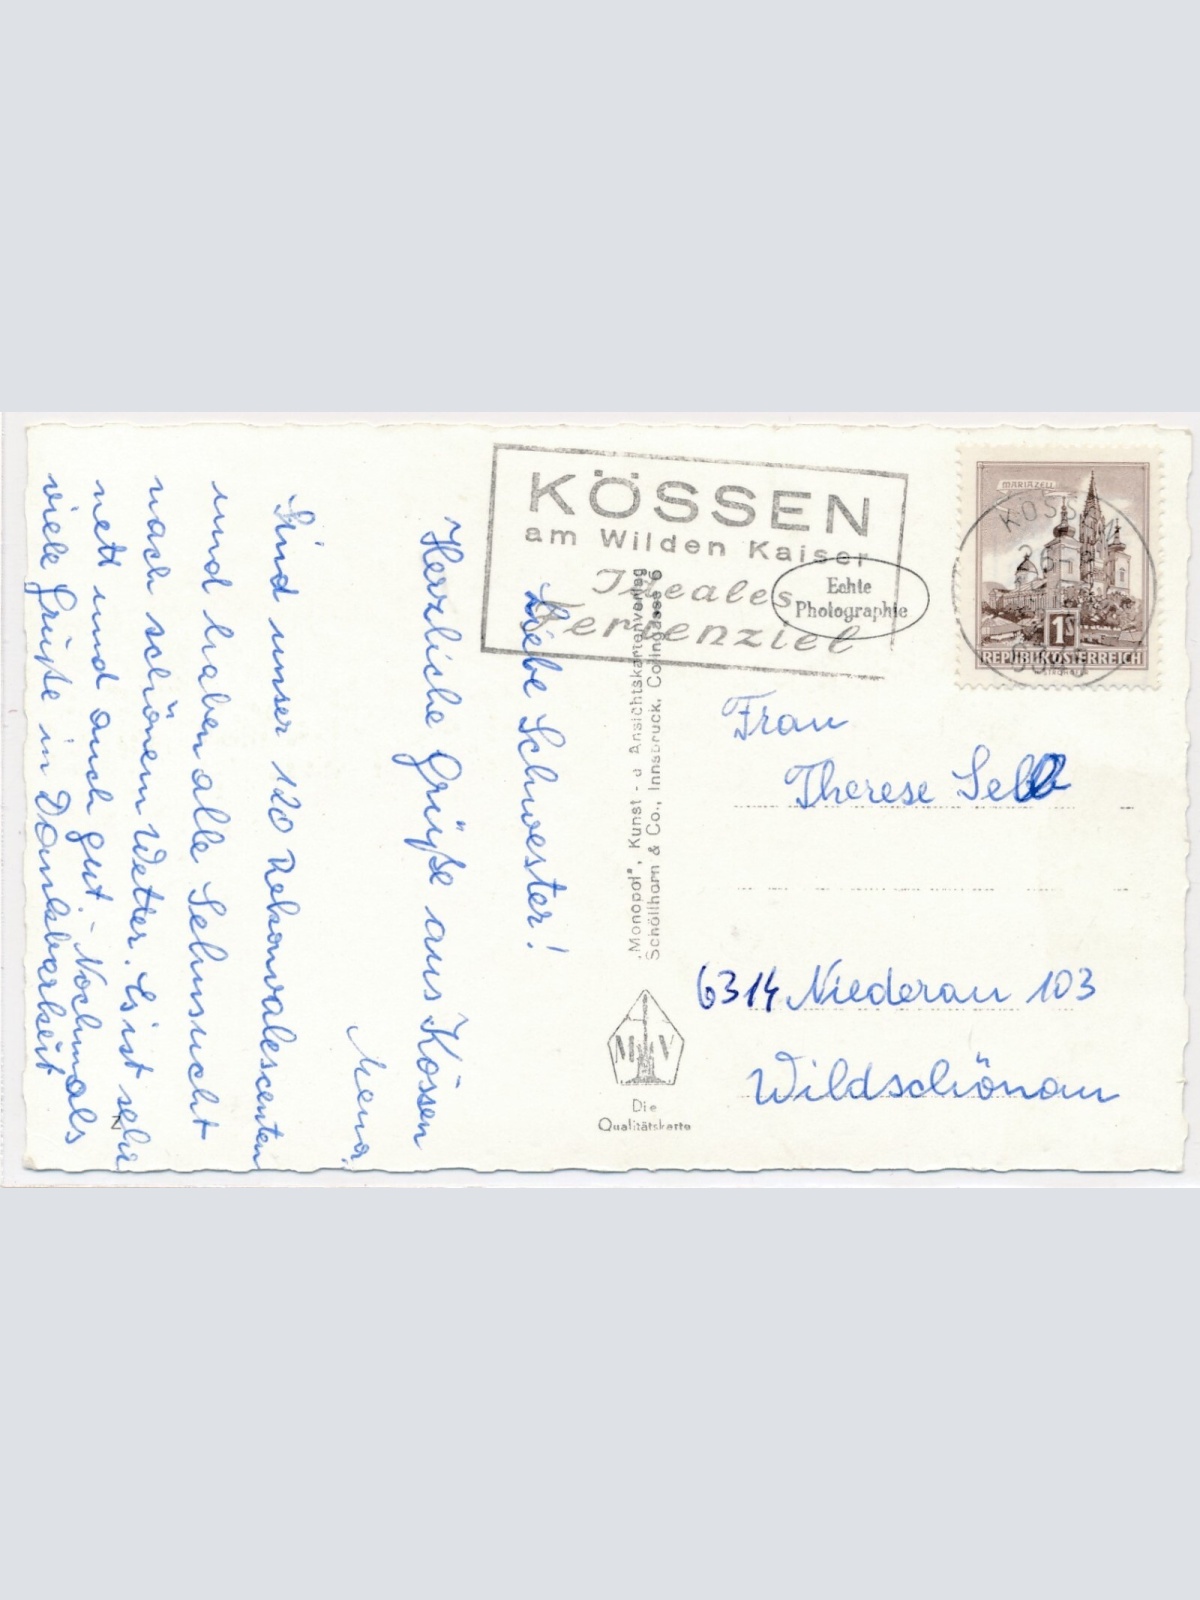 KÖSSEN
am Wilden Kaiser
Ideales
Ferienziel
Echte
Photographie
MARIAZELL
KÖSSEN
1S
REPUBLIK ÖSTERREICH
Liebe Schwester!
Herzliche Grüße aus Kössen
Sind unser 120 Rekonvalescenten
und haben alle Sehnsucht
nach schönem Wetter. Es ist sehr
nett und auch gut - Nochmals
viele Grüße in Dankbarkeit
"Monopol", Kunst- u Ansichtskartenverlag
Schöllhorn & Co., Innsbruck, Colingasse 6
M V
Die
Qualitätskarte
Z
Frau
Therese
6314 Niederau 103
Wildschönau